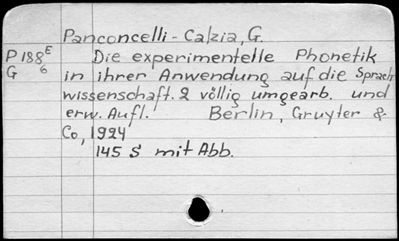 Panconcelli-Calzia, G.
P 188 E Die experimentelle Phonetik
G 6 in ihrer Anwendung auf die Sprach
wissenschaft. 2 völlig umgearb. und
erw. Aufl. Berlin, Gruyter &
Co, 1924
145 S mit Abb.